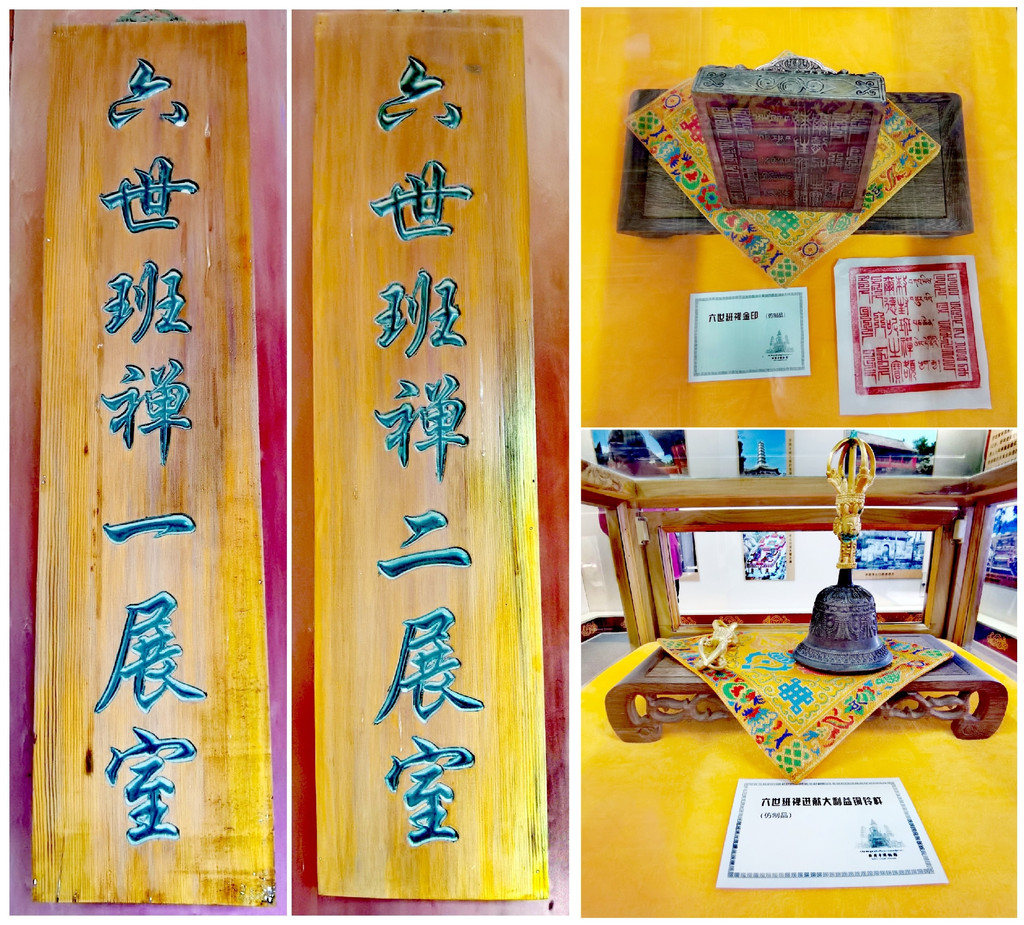 六世班禅一展室
六世班禅二展室
六世班禅金印 (仿制品)
六世班禅进献大利益铜铃杵
(仿制品)